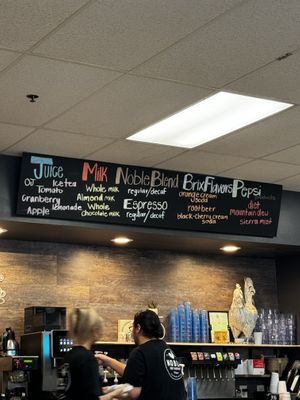 Juice
OJ Icetea
Tomato
Cranberry
Apple lemonade
Milk
Whole milk
Almond milk
Whole
Chocolate milk
Noble Blend
regular/decaf
Espresso
regular/decaf
Brix Flavors
orange cream
Soda
rootbeer
black-cherry cream
soda
Pepsi
products
diet
mountain dew
Sierra mist